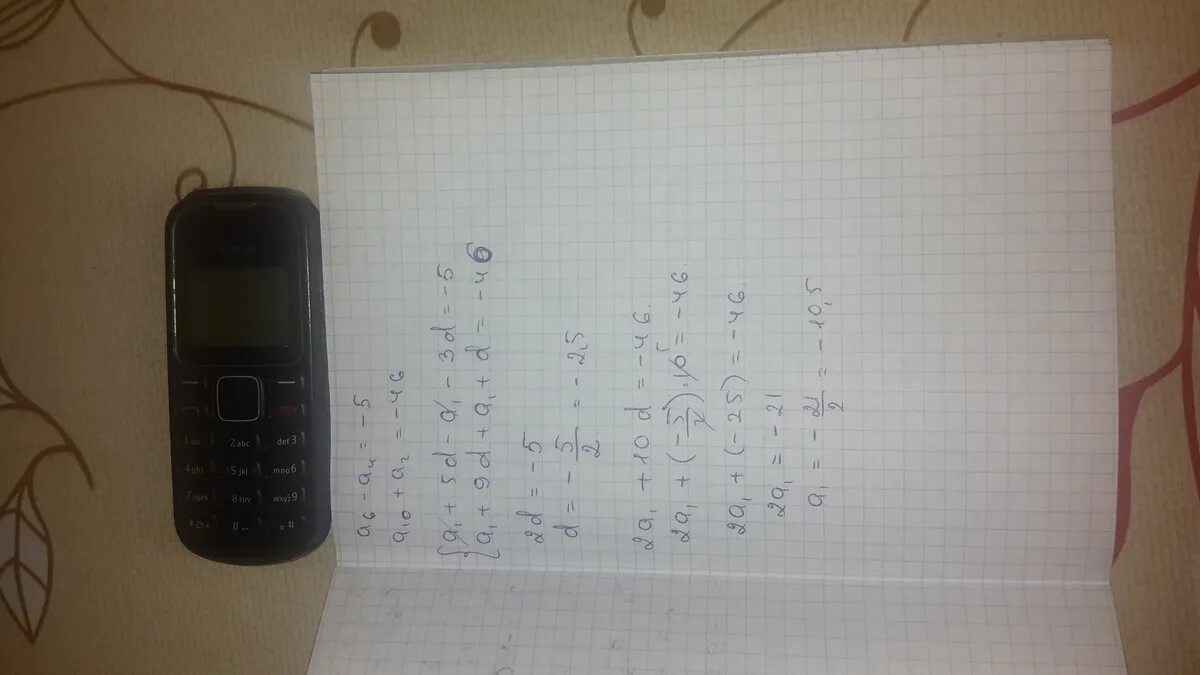 a₆ - a₄ = -5
a₁₀ + a₂ = -46
{a₁ + 5d - a₁ - 3d = -5
{a₁ + 9d + a₁ + d = -46
2d = -5
d = -5/2 = -2,5
2a₁ + 10d = -46.
2a₁ + (-5/2)·10⁵ = -46.
2a₁ + (-25) = -46.
2a₁ = -21
a₁ = -21/2 = -10,5
NOKIA
2abc def3
4ghi 5jkl mno6
7pqrs 8tuv wxyz9
0 #